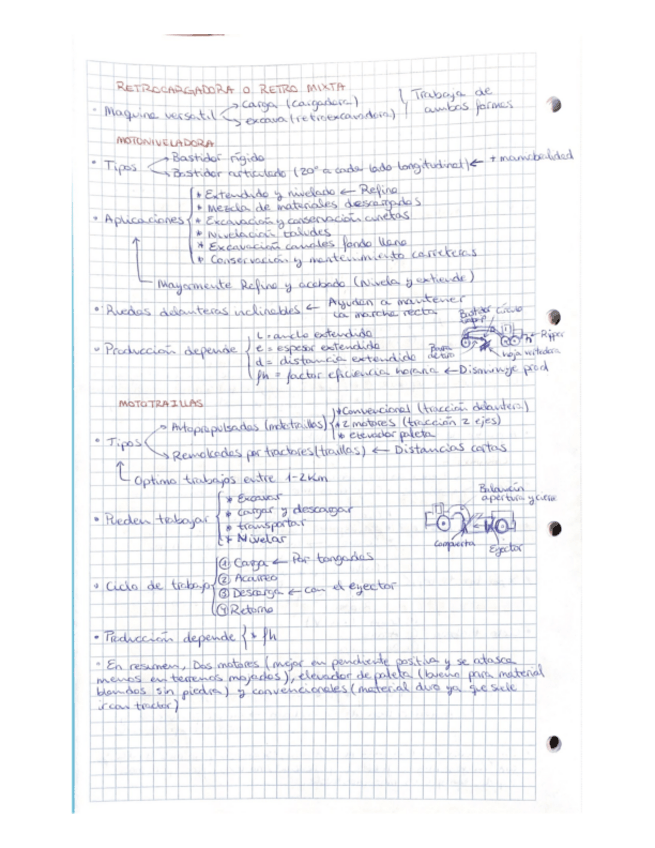 RETROCARGADORA O RETRO MIXTA
• Maquina versatil → carga (cargadora) → excava (retroexcavadora) } Trabaja de ambas formas
MOTONIVELADORA
• Tipos → Bastidor rígido
→ Bastidor articulado (20° a cada lado longitudinal) ← + maniobralidad
• Aplicaciones { * Extendido y nivelado ← Refino
* Mezcla de materiales descargados
* Excavación y conservación cunetas
* Nivelación taludes
* Excavación canales fondo llano
* Conservación y mantenimiento carreteras
Mayormente Refino y acabado (Nivela y extiende)
• Ruedas delanteras inclinables ← Ayudan a mantener la marcha recta
Bastidor
Círculo
Ripper
hoja vertedera
• Producción depende { L = ancho extendido
e = espesor extendido
d = distancia extendido
fh = factor eficiencia horaria ← Disminuye prod
MOTOTRAILLAS
• Tipos → Autopropulsadas (mototraillas) { * Convencional (tracción delantera)
* 2 motores (tracción 2 ejes)
* elevador paleta
→ Remolcadas por tractores (traillas) ← Distancias cortas
Optimo trabajos entre 1-2Km
• Pueden trabajar { * Excavar
* cargar y descargar
* transportar
* Nivelar
Balancín apertura y cierre
compuerta
Eyector
• Ciclo de trabajo { ① Carga ← Por tongadas
② Acarreo
③ Descarga ← con el eyector
④ Retorno
• Producción depende { * fh
• En resumen, Dos motores (mejor en pendiente positiva y se atasca
menos en terrenos mojados), elevador de paleta (bueno para material
blandos sin piedra) y convencionales (material duro ya que suele
ir con tractor)